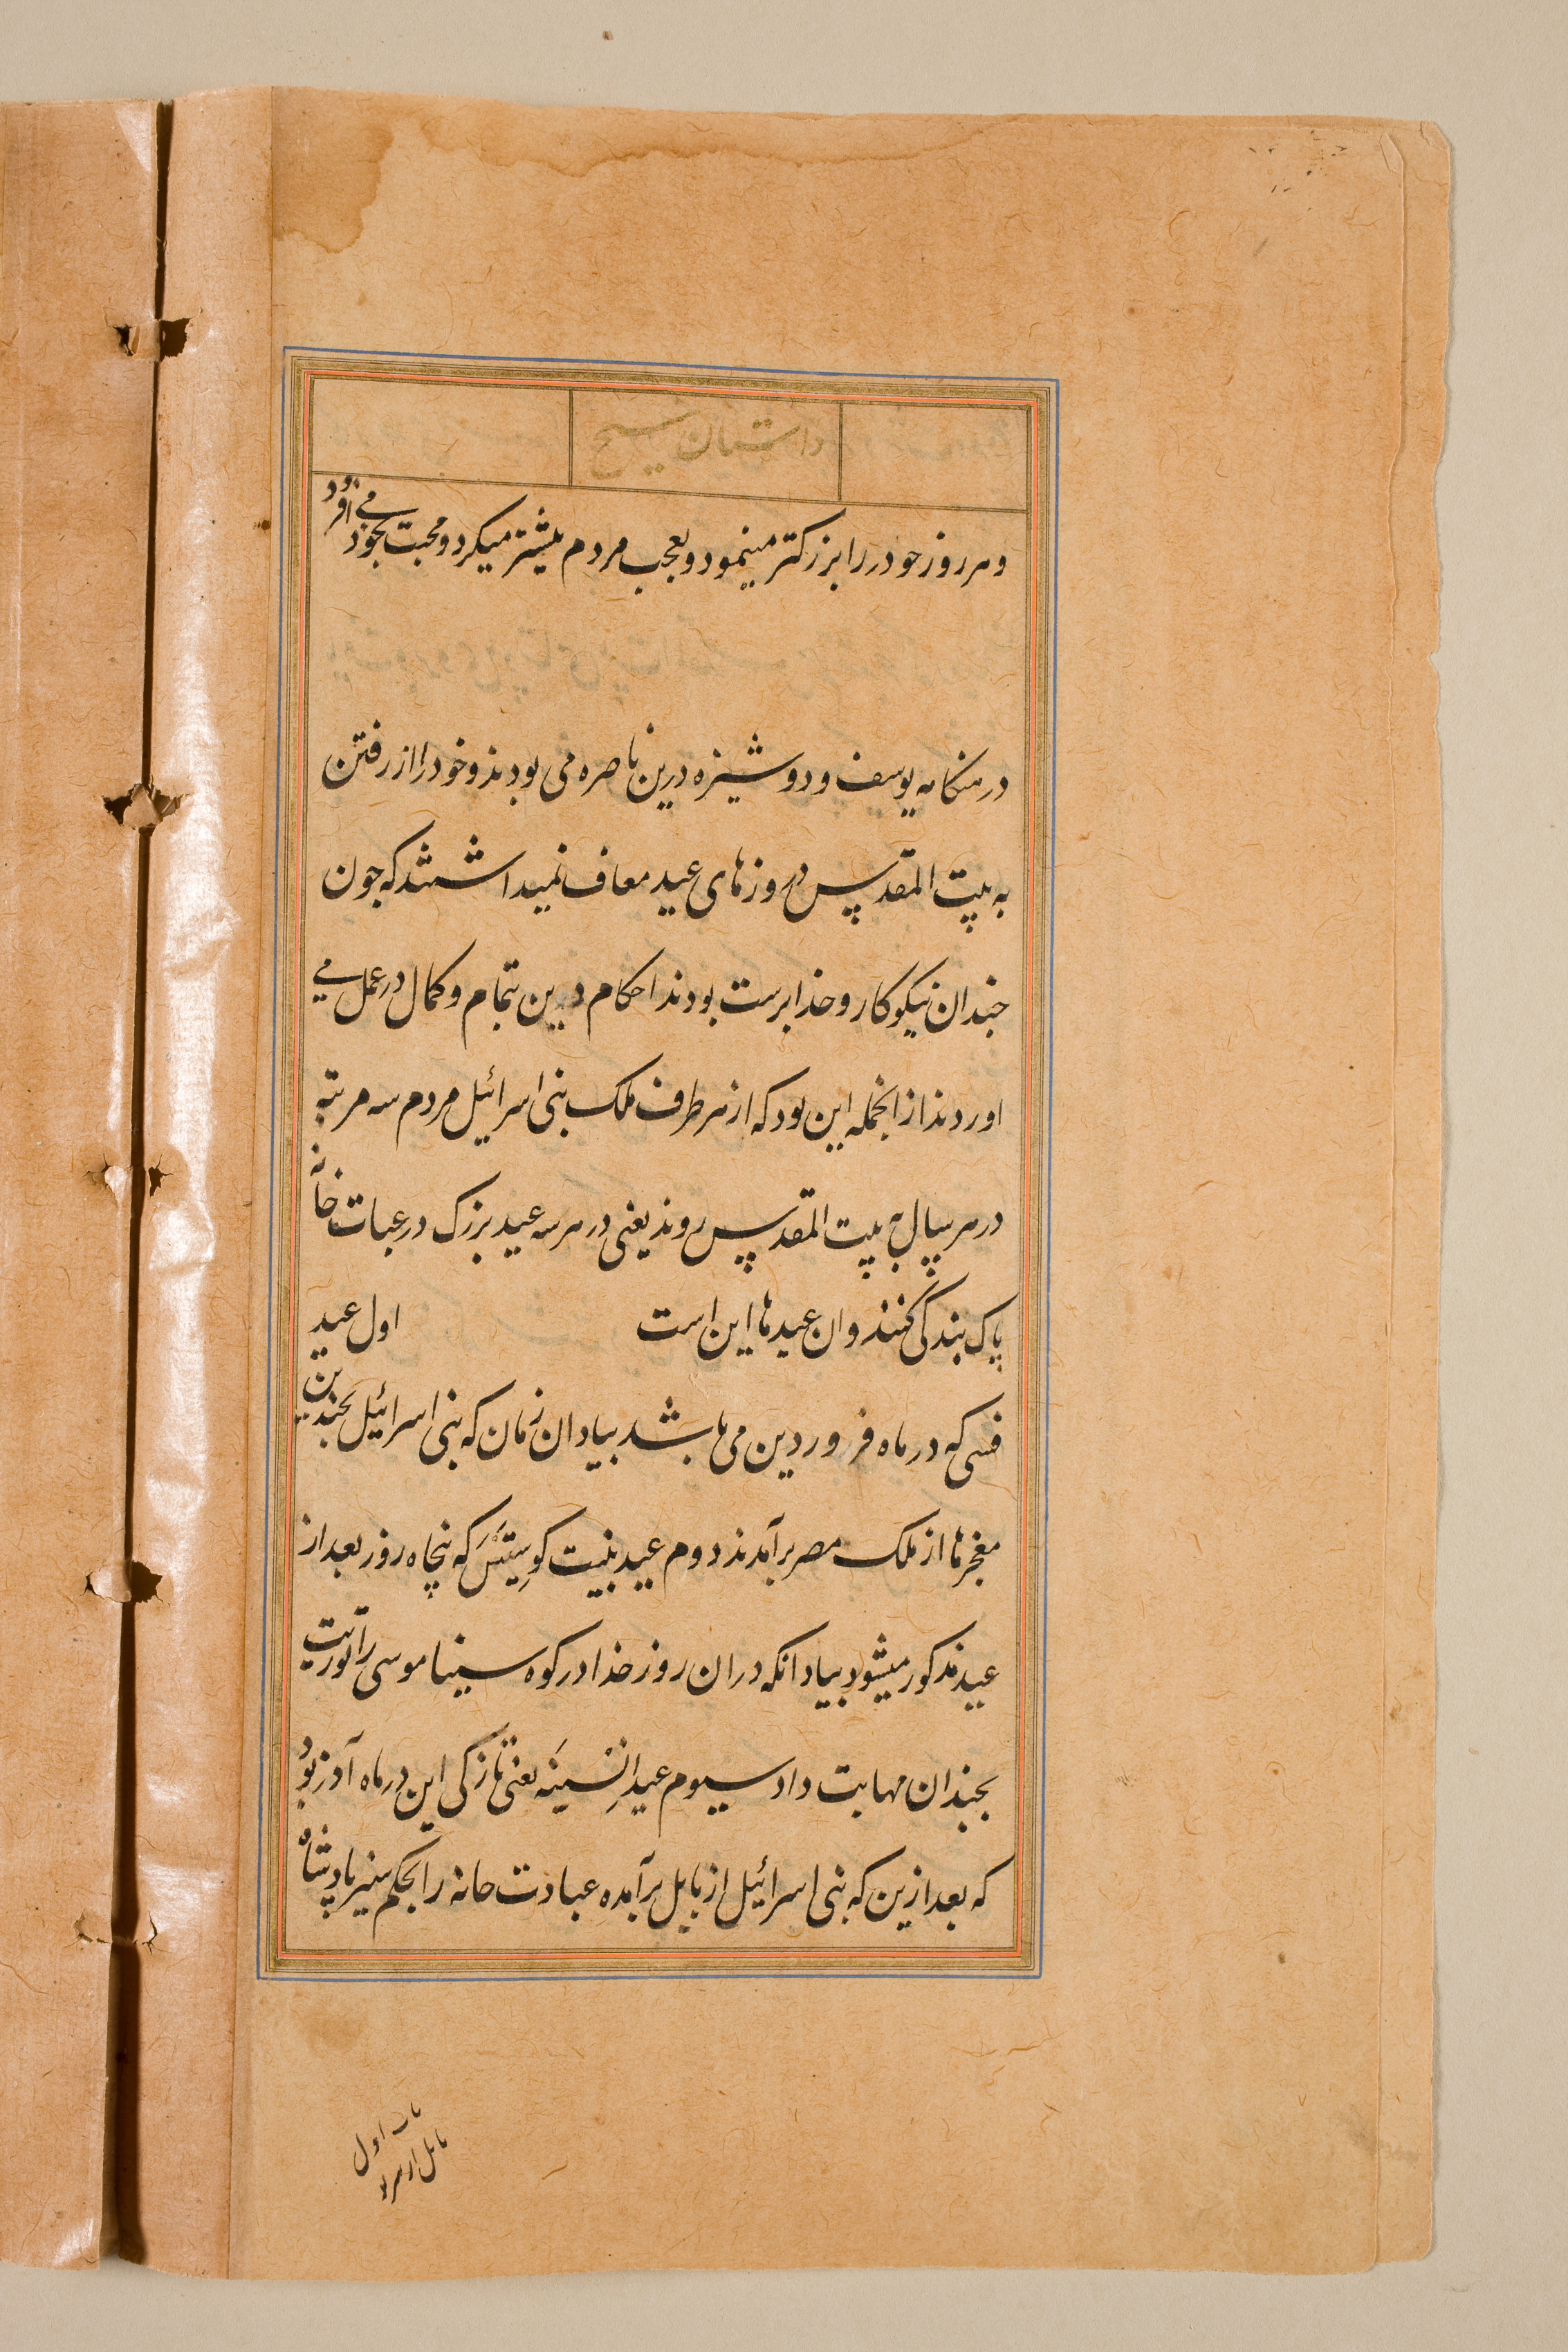 داستان مسیح
و هر روز خود را بزرکتر مینمود و تعجب مردم بیشتر میکرد و محبت بخود می افزود
در هنکامه یوسف و دوشیزه درین ناصره می بودند و خود را از رفتن
به بیت المقدس در روزهای عید معاف نمیداشتند که جون
جندان نیکوکار و خدابرست بودند احکام دین بتمام و کمال در عمل می
اوردند از انجمله این بود که از هر طرف ملک بنی اسرائیل مردم سه مرتبه
در هر سال به بیت المقدس روند یعنی در هر سه عید بزرک در عبات خانه
پاک بندکی کنند و ان عیدها این است اول عید
فسی که در ماه فروردین می باشد بیاد ان زمان که بنی اسرائیل بجندین
معجزها از ملک مصر برآمدند دوم عید بنیت کوستیس که پنجاه روز بعد از
عید مذکور میشود بیاد انکه دران روز خدا در کوه سینا موسی را توریت
بجندان مهابت داد سیوم عید انسینه یعنی تازکی این در ماه آذر بود
که بعد ازین که بنی اسرائیل از بابل برآمده عبادت خانه را بحکم پادشاه
اول